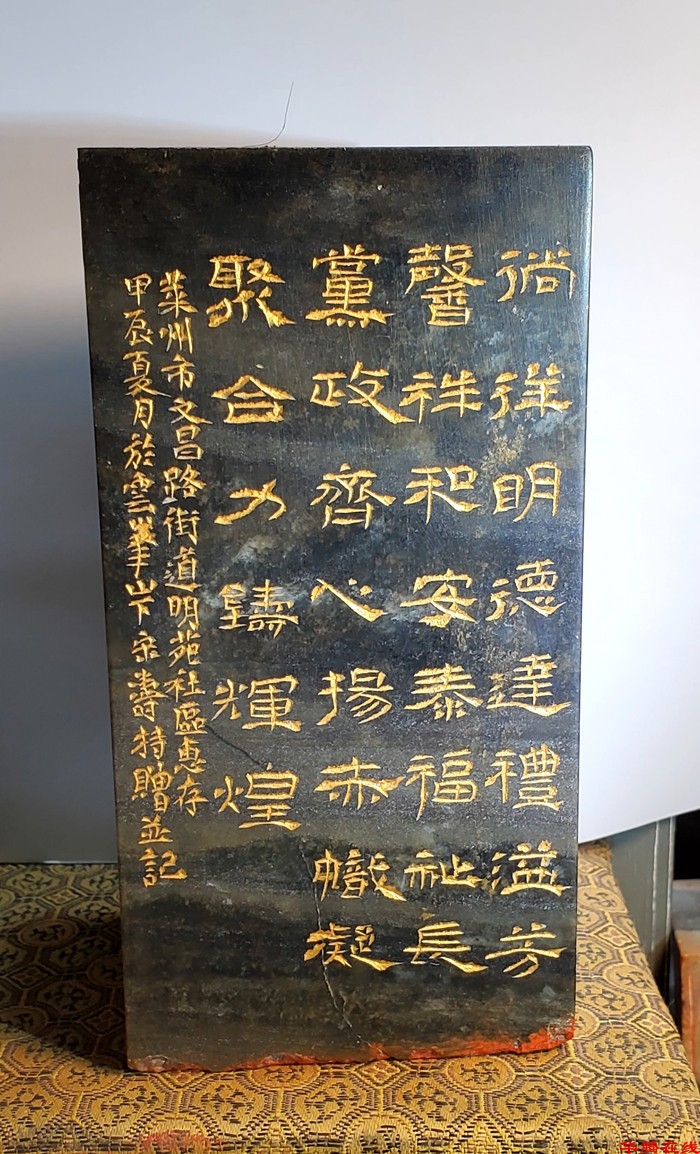 徜徉明德達禮溢芳
馨祥和安泰福祉長
黨政齊心揚赤幟凝
聚合力鑄輝煌
萊州市文昌路街道明苑社區惠存
甲辰夏月於雲峯山下壽特贈並記